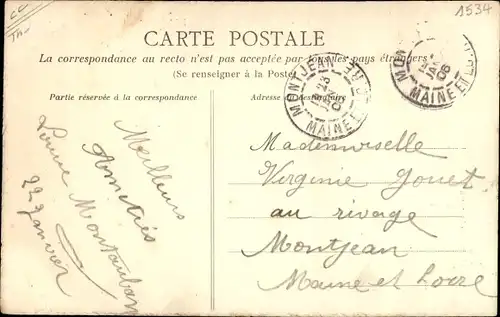 1534
CARTE POSTALE
La correspondance au recto n'est pas acceptée par tous les pays étrangers
(Se renseigner à la Poste)
Partie réservée à la correspondance
Adresse du destinataire
MONTJEAN
MAINE ET LOIRE
MAINE ET
06
Meilleurs
Amitiés
Louise Montauban
22 Janvier
Mademoiselle
Virginie Jouet
au rivage
Montjean
Maine et Loire